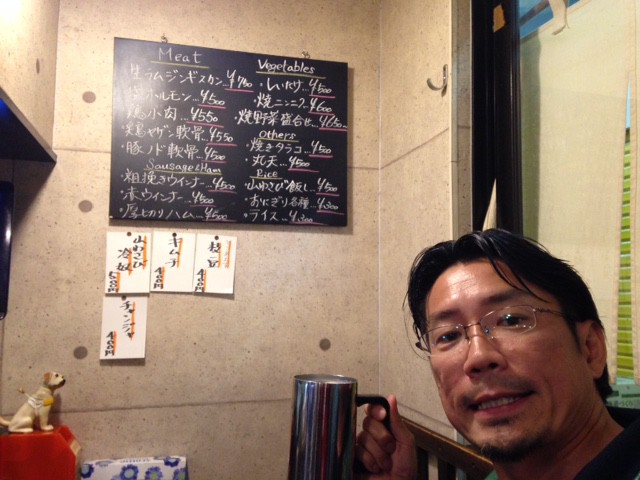 Meat
生ラムジンギスカン…¥700
ホルモン…¥500
鶏小肉…¥550
ヤゲン軟骨…¥550
豚ノド軟骨…¥500
Sausage&Ham
粗挽きウインナー…¥500
赤ウインナー…¥500
厚切りハム…¥500
Vegetables
・しいたけ…¥500
・焼ニンニク…¥600
・焼野菜盛合せ…¥650
Others
・焼きタラコ…¥500
・丸天…¥500
Rice
・山わさび飯し…¥500
・おにぎり各種…¥300
・ライス…¥300
山わさび
冷奴
500円
キムチ
400円
枝豆
400円
チャンジャ
400円